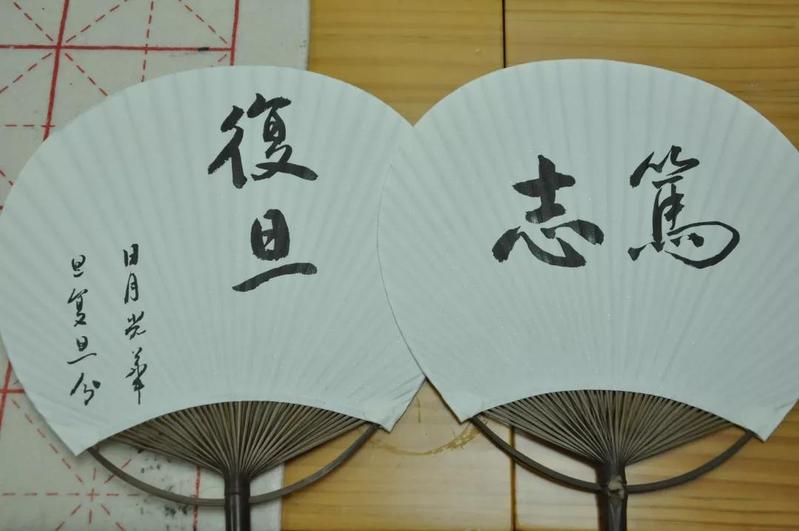 復旦
日月光華
旦复旦兮
篤志